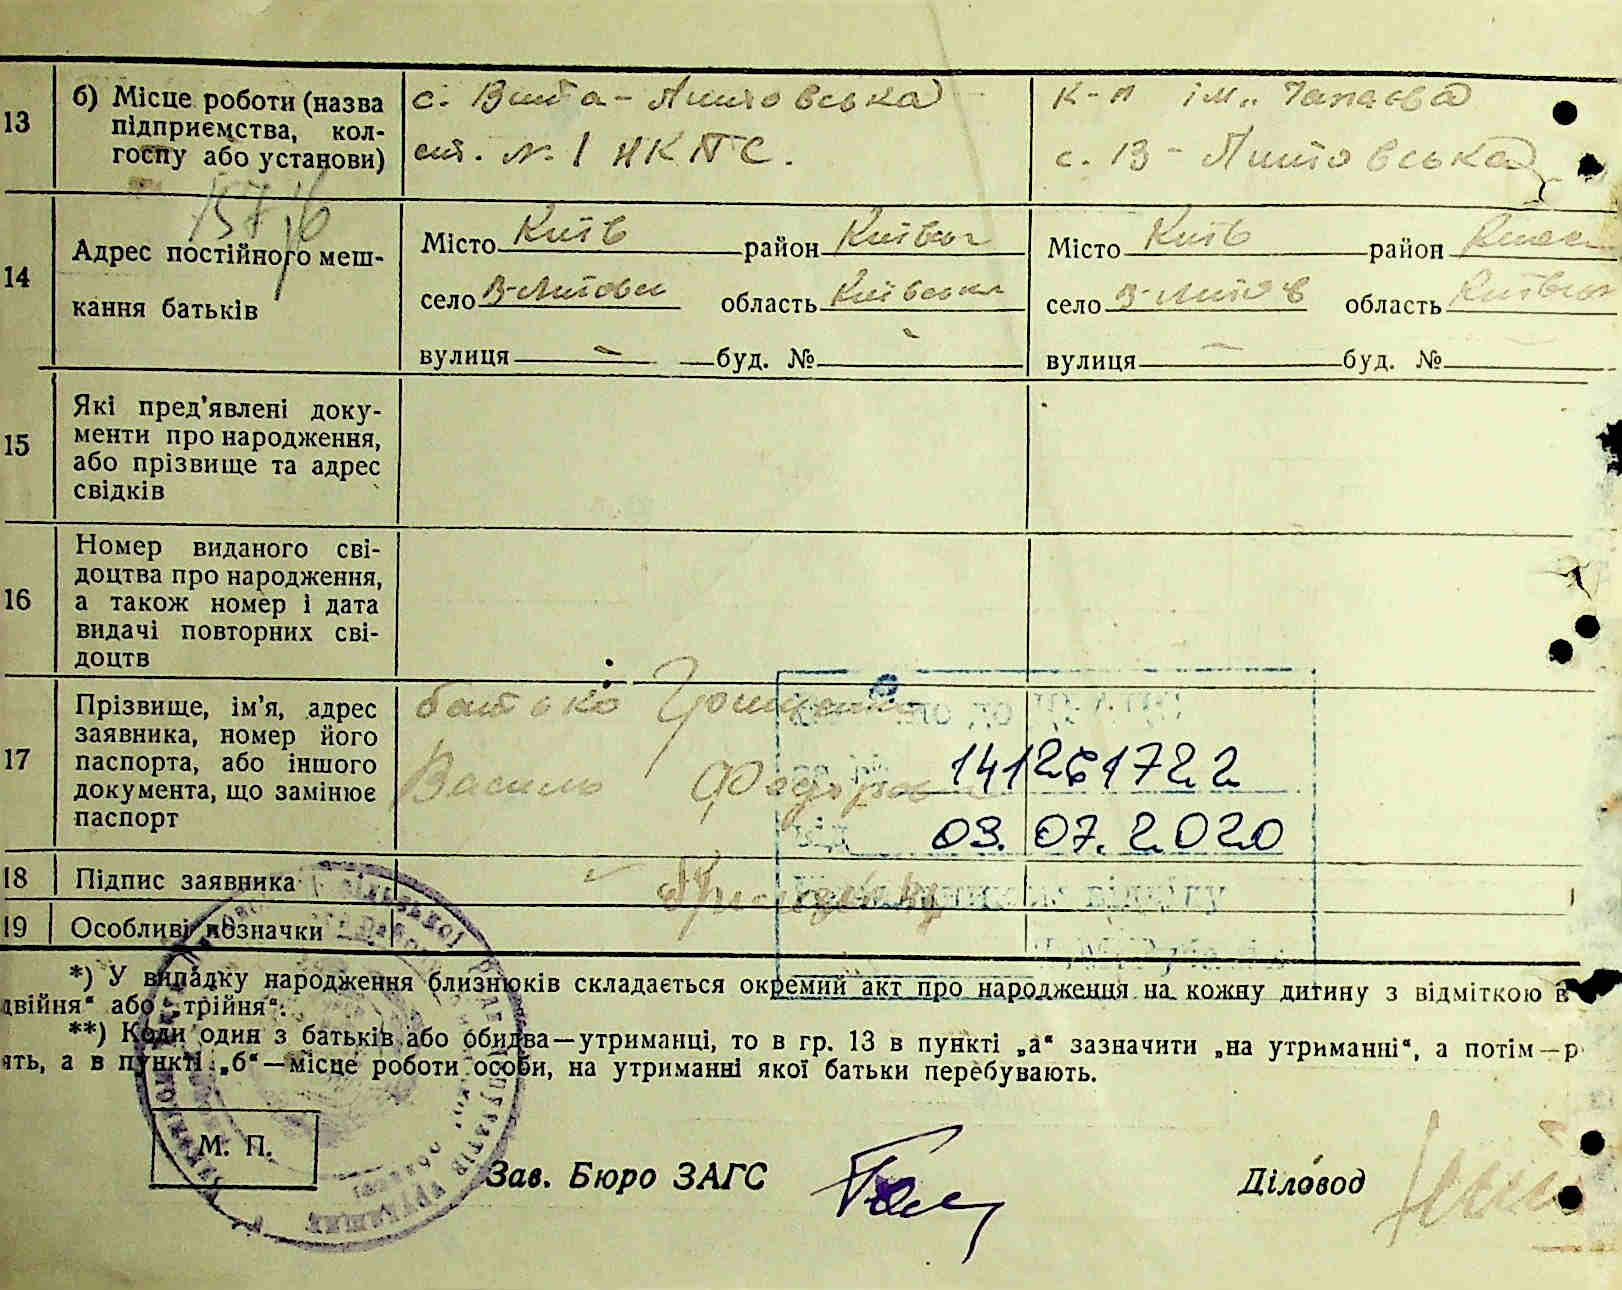 13 б) Місце роботи (назва підприємства, колгоспу або установи)
с. Вита-Литовська
ст. N. 1 НКПС.
к-п ім. Чапаєва
с. В-Литовська
157
14 Адрес постійного мешкання батьків
Місто Київ район Київськ
село В-Литовськ область Київська
вулиця - буд. № -
Місто Київ район
село В-Литов область Київськ
вулиця - буд. № -
15 Які пред'явлені документи про народження, або прізвище та адрес свідків
16 Номер виданого свідоцтва про народження, а також номер і дата видачі повторних свідоцтв
17 Прізвище, ім'я, адрес заявника, номер його паспорта, або іншого документа, що замінює паспорт
батько Грищенко
Василь Федоров
141261722
03.07.2020
18 Підпис заявника
19 Особливі позначки
*) У випадку народження близнюків складається окремий акт про народження на кожну дитину з відміткою в
двійня" або „трійня".
**) Коли один з батьків або обидва—утриманці, то в гр. 13 в пункті „а" зазначити „на утриманні", а потім—р
ять, а в пункті „б"—місце роботи особи, на утриманні якої батьки перебувають.
М. П.
Зав. Бюро ЗАГС
Діловод